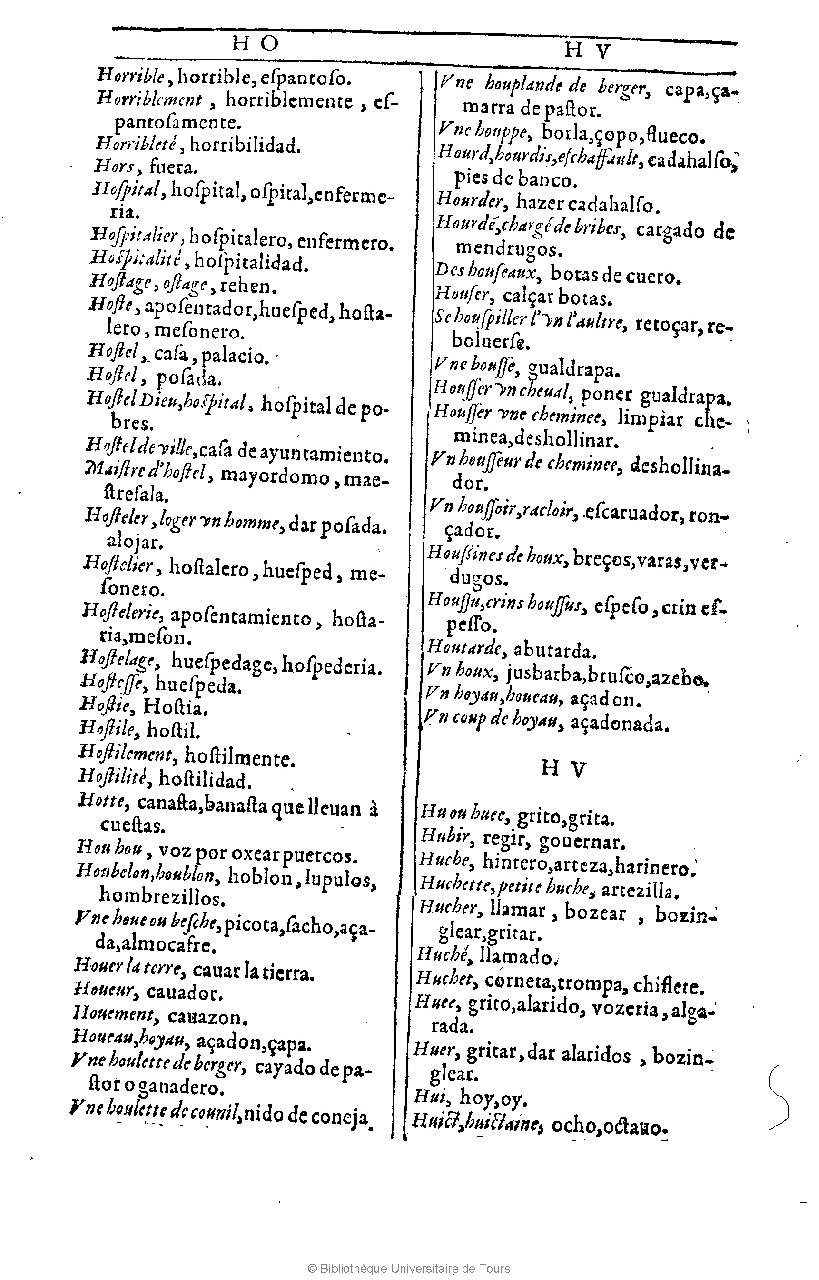 H O
Horrible, horrible, eſpantoſo.
Horriblement, horriblemente, eſ-
pantoſamente.
Horribleté, horribilidad.
Hors, fuera.
Hoſpital, hoſpital, oſpital, enferme-
ria.
Hoſpitalier, hoſpitalero, enfermero.
Hoſpitalité, hoſpitalidad.
Hoſtage, oſtage, rehen.
Hoſte, apoſentador, hueſped, hoſta-
lero, meſonero.
Hoſtel, caſa, palacio.
Hoſtel, poſada.
Hoſtel Dieu, hoſpital, hoſpital de po-
bres.
Hoſtel de ville, caſa de ayuntamiento.
Maiſtre d'hoſtel, mayordomo, mae-
ſtreſala.
Hoſteler, loger vn homme, dar poſada.
alojar.
Hoſtelier, hoſtalero, hueſped, me-
ſonero.
Hoſtelerie, apoſentamiento, hoſta-
ria, meſon.
Hoſtelage, hueſpedage, hoſpederia.
Hoſteſſe, hueſpeda.
Hoſtie, Hoſtia.
Hoſtile, hoſtil.
Hoſtilement, hoſtilmente.
Hoſtilité, hoſtilidad.
Hotte, canaſta, banaſta que lleuan à
cueſtas.
Hou hou, voz por oxear puercos.
Houbelon, houblon, hoblon, lupulos,
hombrezillos.
Vne houe ou beſche, picota, ſacho, aça-
da, almocafre.
Houer la terre, cauar la tierra.
Houeur, cauador.
Houement, cauazon.
Houeau, hoyau, açadon, çapa.
Vne houlette de berger, cayado de pa-
ſtor o ganadero.
Vne houlette de counil, nido de coneja.
H V
Vne houplande de berger, capa, ça-
marra de paſtor.
Vne houppe, borla, çopo, flueco.
Hourd, hourdis, eſchaffault, cadahalſo,
pies de banco.
Hourder, hazer cadahalſo.
Hourdé, chargé de bribes, cargado de
mendrugos.
Des houſeaux, botas de cuero.
Houſer, calçar botas.
Se houſpiller l'vn l'aultre, retoçar, re-
boluerſe.
Vne houſſe, gualdrapa.
Houſſer vn cheual, poner gualdrapa.
Houſſer vne cheminee, limpiar che-
minea, deshollinar.
Vn houſſeur de cheminee, deshollina-
dor.
Vn houſſoir, racloir, eſcaruador, ron-
çador.
Houſsines de houx, breços, varas, ver-
dugos.
Houſſu, crins houſſus, eſpeſo, crin eſ-
peſſo.
Houtarde, abutarda.
Vn houx, jusbarba, bruſco, azebo.
Vn hoyau, houeau, açadon.
Vn coup de hoyau, açadonada.
H V
Hu ou huee, grito, grita.
Hubir, regir, gouernar.
Huche, hintero, arteza, harinero.
Huchette, petite huche, artezilla.
Hucher, llamar, bozear, bozin-
glear, gritar.
Huché, llamado.
Huchet, corneta, trompa, chiflete.
Huee, grito, alarido, vozeria, alga-
rada.
Huer, gritar, dar alaridos, bozin-
glear.
Hui, hoy, oy.
Huict, huictaine, ocho, octauo.
© Bibliothèque Universitaire de Tours